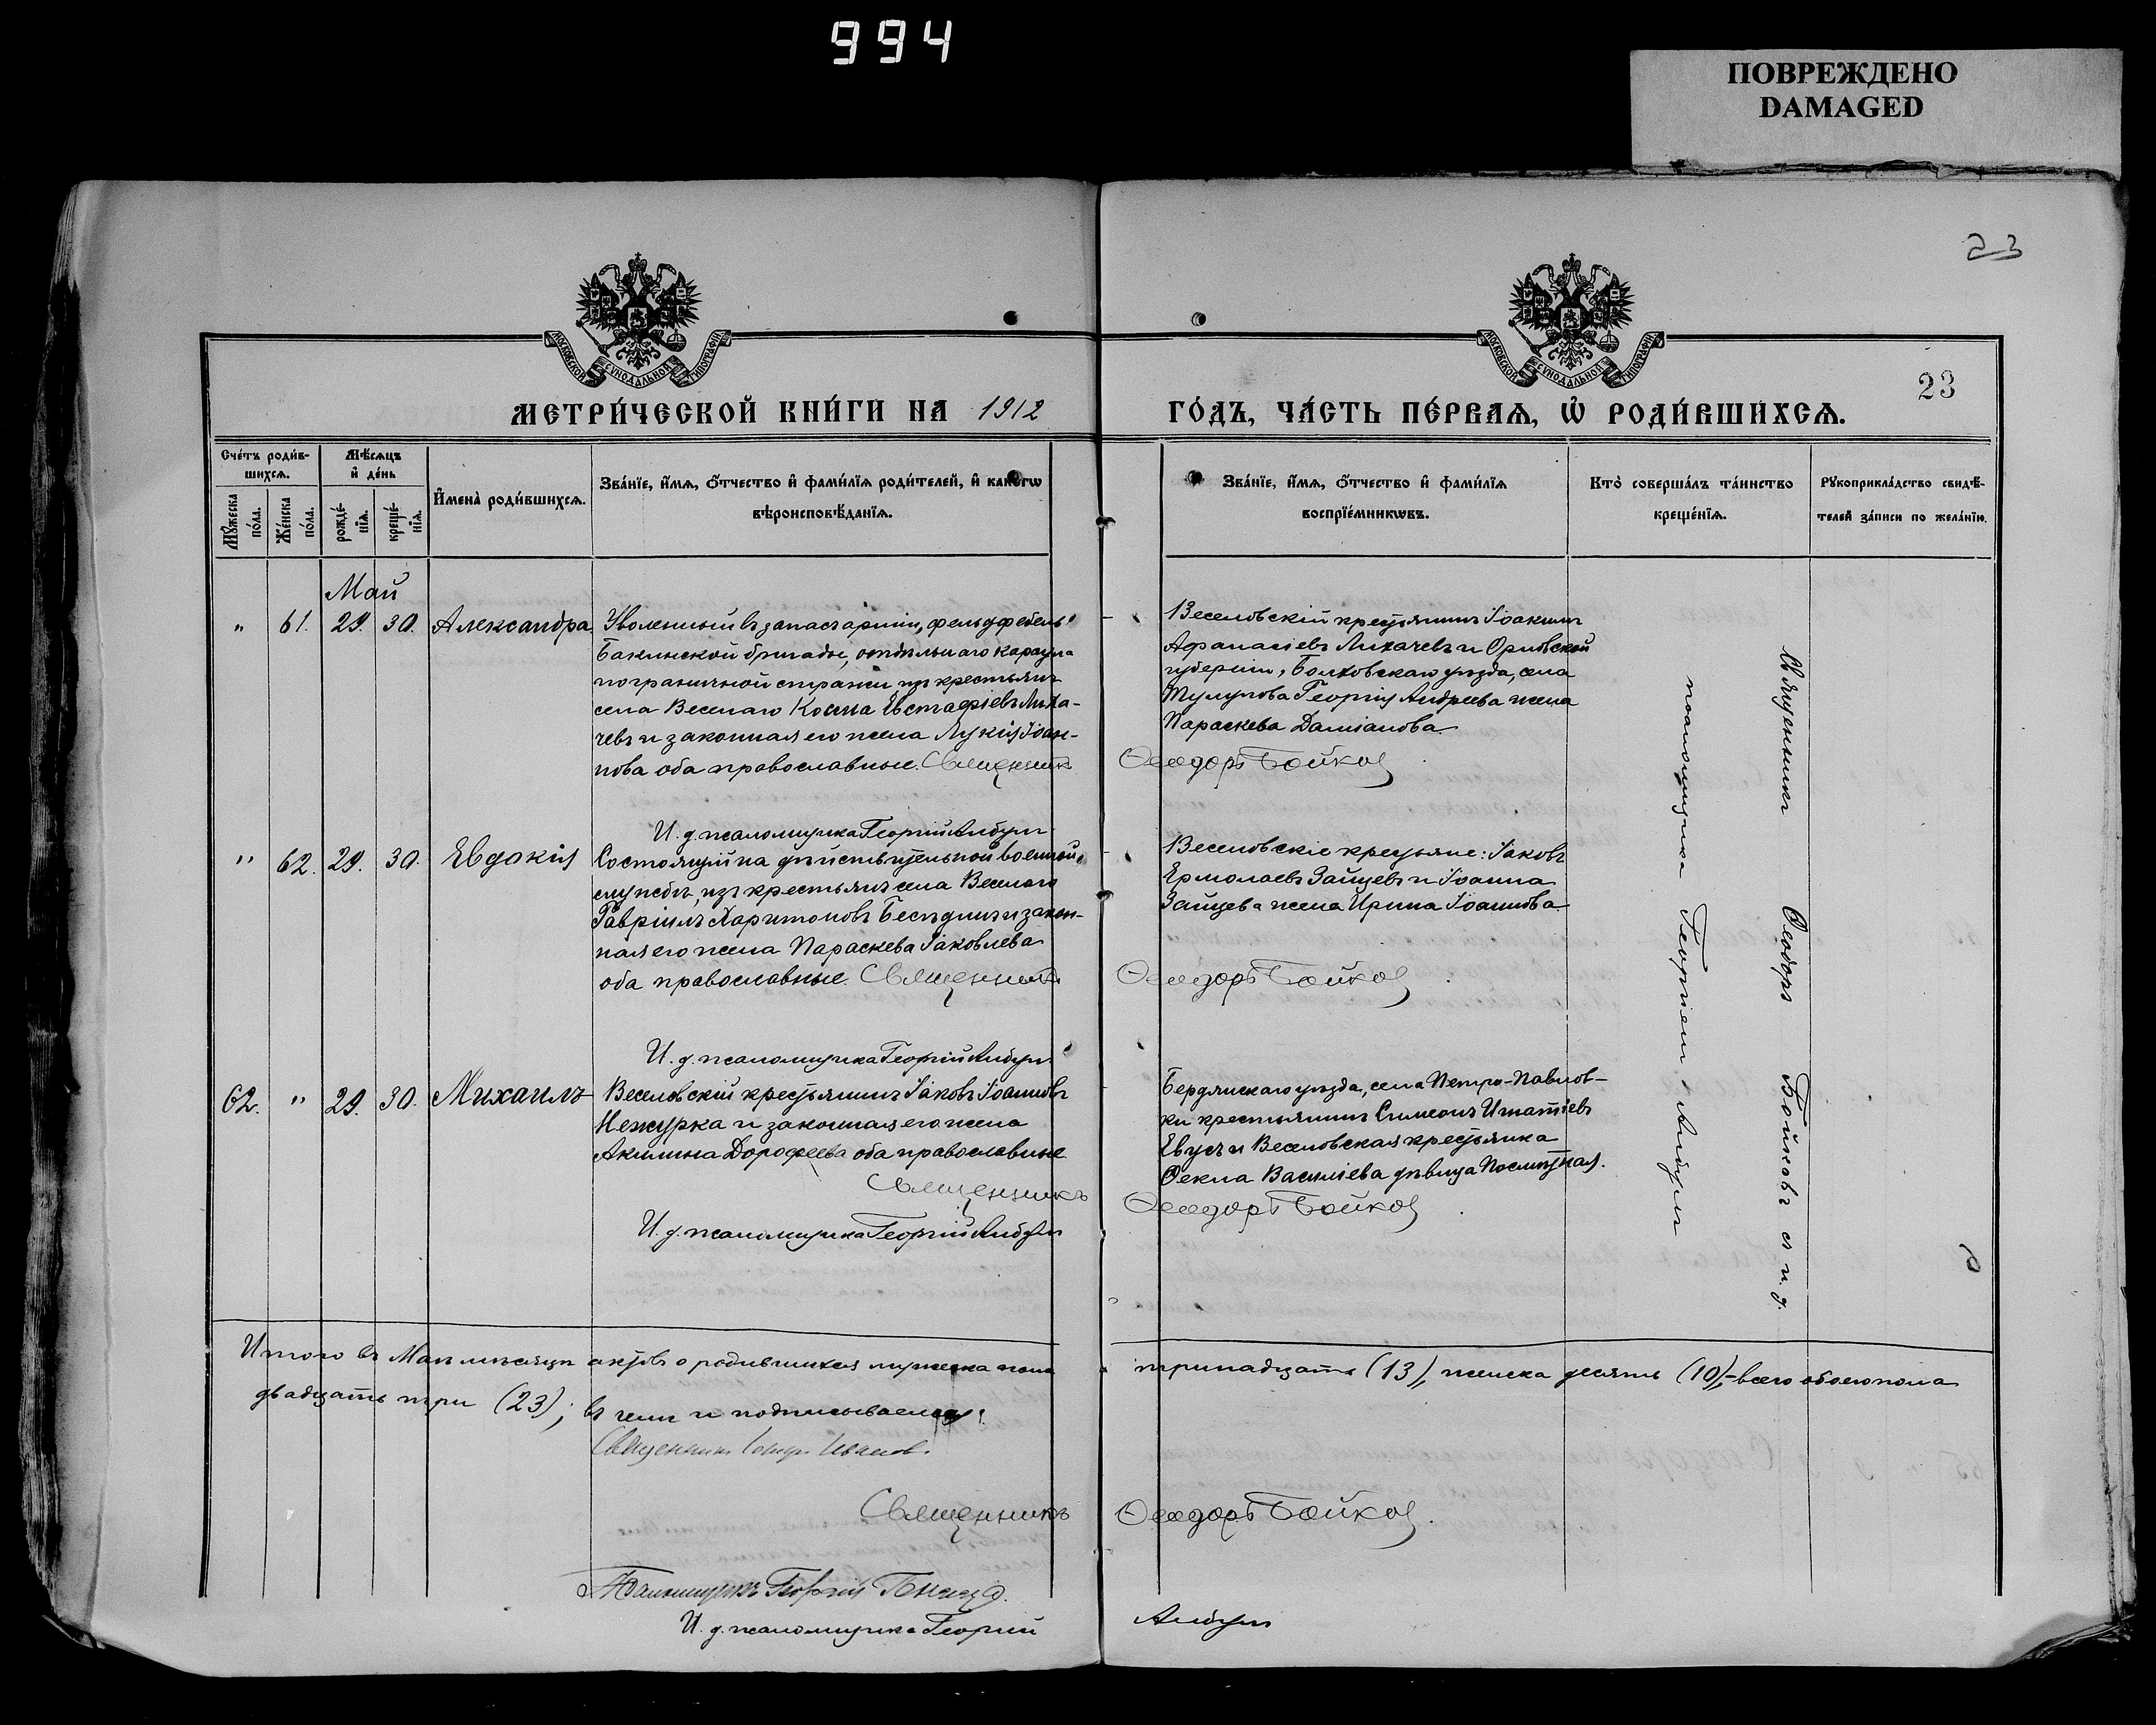 994
ПОВРЕЖДЕНО
DAMAGED
23
23
МОСКОВСКОЙ СУНОДАЛЬНОЙ ТИПОГРАФІИ
МОСКОВСКОЙ СУНОДАЛЬНОЙ ТИПОГРАФІИ
МЕТРИ́ЧЕСКОЙ КНИ́ГИ НА 1912
ГО́ДЪ, ЧА́СТЬ ПЕ́РВАѦ, Ѡ҆ РОДИ́ВШИХСѦ.
Сче́тъ роди́в-
шихсѧ.
Мѣ́сѧцъ
и҆ де́нь
Мꙋ́жеска
по́ла.
Же́нска
по́ла.
рожде́-
нїѧ.
креще́-
нїѧ.
И҆мена̀ роди́вшихсѧ.
Зва́нїе, и҆́мѧ, о҆́тчество и҆ фами́лїѧ роди́телей, и҆ како́гѡ
вѣроисповѣ́данїѧ.
Зва́нїе, и҆́мѧ, о҆́тчество и҆ фами́лїѧ
воспрїе́мникѡвъ.
Кто̀ соверша́лъ та́инство
креще́нїѧ.
Рꙋкоприкла́дство свидѣ́-
телей за́писи по жела́нїю.
Май
" 61. 29. 30. Александра.
Уволенный въ запасъ арміи, фельдфебель
Бакинской бригады, отдѣльнаго
пограничной стражи изъ крестьянъ
села Веселаго Косма Евстафіевъ Лиха-
чевъ и законная его жена Лукія Іоан-
нова оба православные. Священникъ
Веселовскій крестьянинъ Іоакимъ
Афанасіевъ Лихачевъ и Орловской
губерніи, Болховскаго уѣзда, села
Тулупова Георгія Андреева жена
Параскева Даміанова.
Ѳеодоръ Бойков
И. д. псаломщика Георгій
" 62. 29. 30. Евдокія
Состоящій на дѣйствительной военной
службѣ, изъ крестьянъ села Веселаго
Гавріилъ Харитоновъ Бесѣдинъ и закон-
ная его жена Параскева Іаковлева
оба православные. Священникъ
Веселовскіе крестьяне: Іаковъ
Ермолаевъ Зайцевъ и Іоанна
Зайцева жена Ирина Іоаннова.
Ѳеодоръ Бойков
И. д. псаломщика Георгій
62. " 29. 30. Михаилъ
Веселовскій крестьянинъ Іаковъ Іоанновъ
и законная его жена
Акилина Дорофеева оба православные
Священникъ
Бердянскаго уѣзда, села Петро-Павлов-
ки крестьянинъ Симеонъ Игнатіевъ
и Веселовская крестьянка
Ѳекла Василіева дѣвица
Ѳеодоръ Бойков
И. д. псаломщика Георгій
Священникъ Ѳеодоръ Бойковъ съ и. д.
псаломщика Георгіем
Итого въ Маѣ мѣсяцѣ актовъ о родившихся мужеска пола
тринадцать (13), женска десять (10),- всего обоего пола
двадцать три (23); въ чемъ и подписываемся:
Священникъ Иванов.
Священникъ
Ѳеодоръ Бойков.
Псаломщикъ Георгій
И. д. псаломщика Георгій